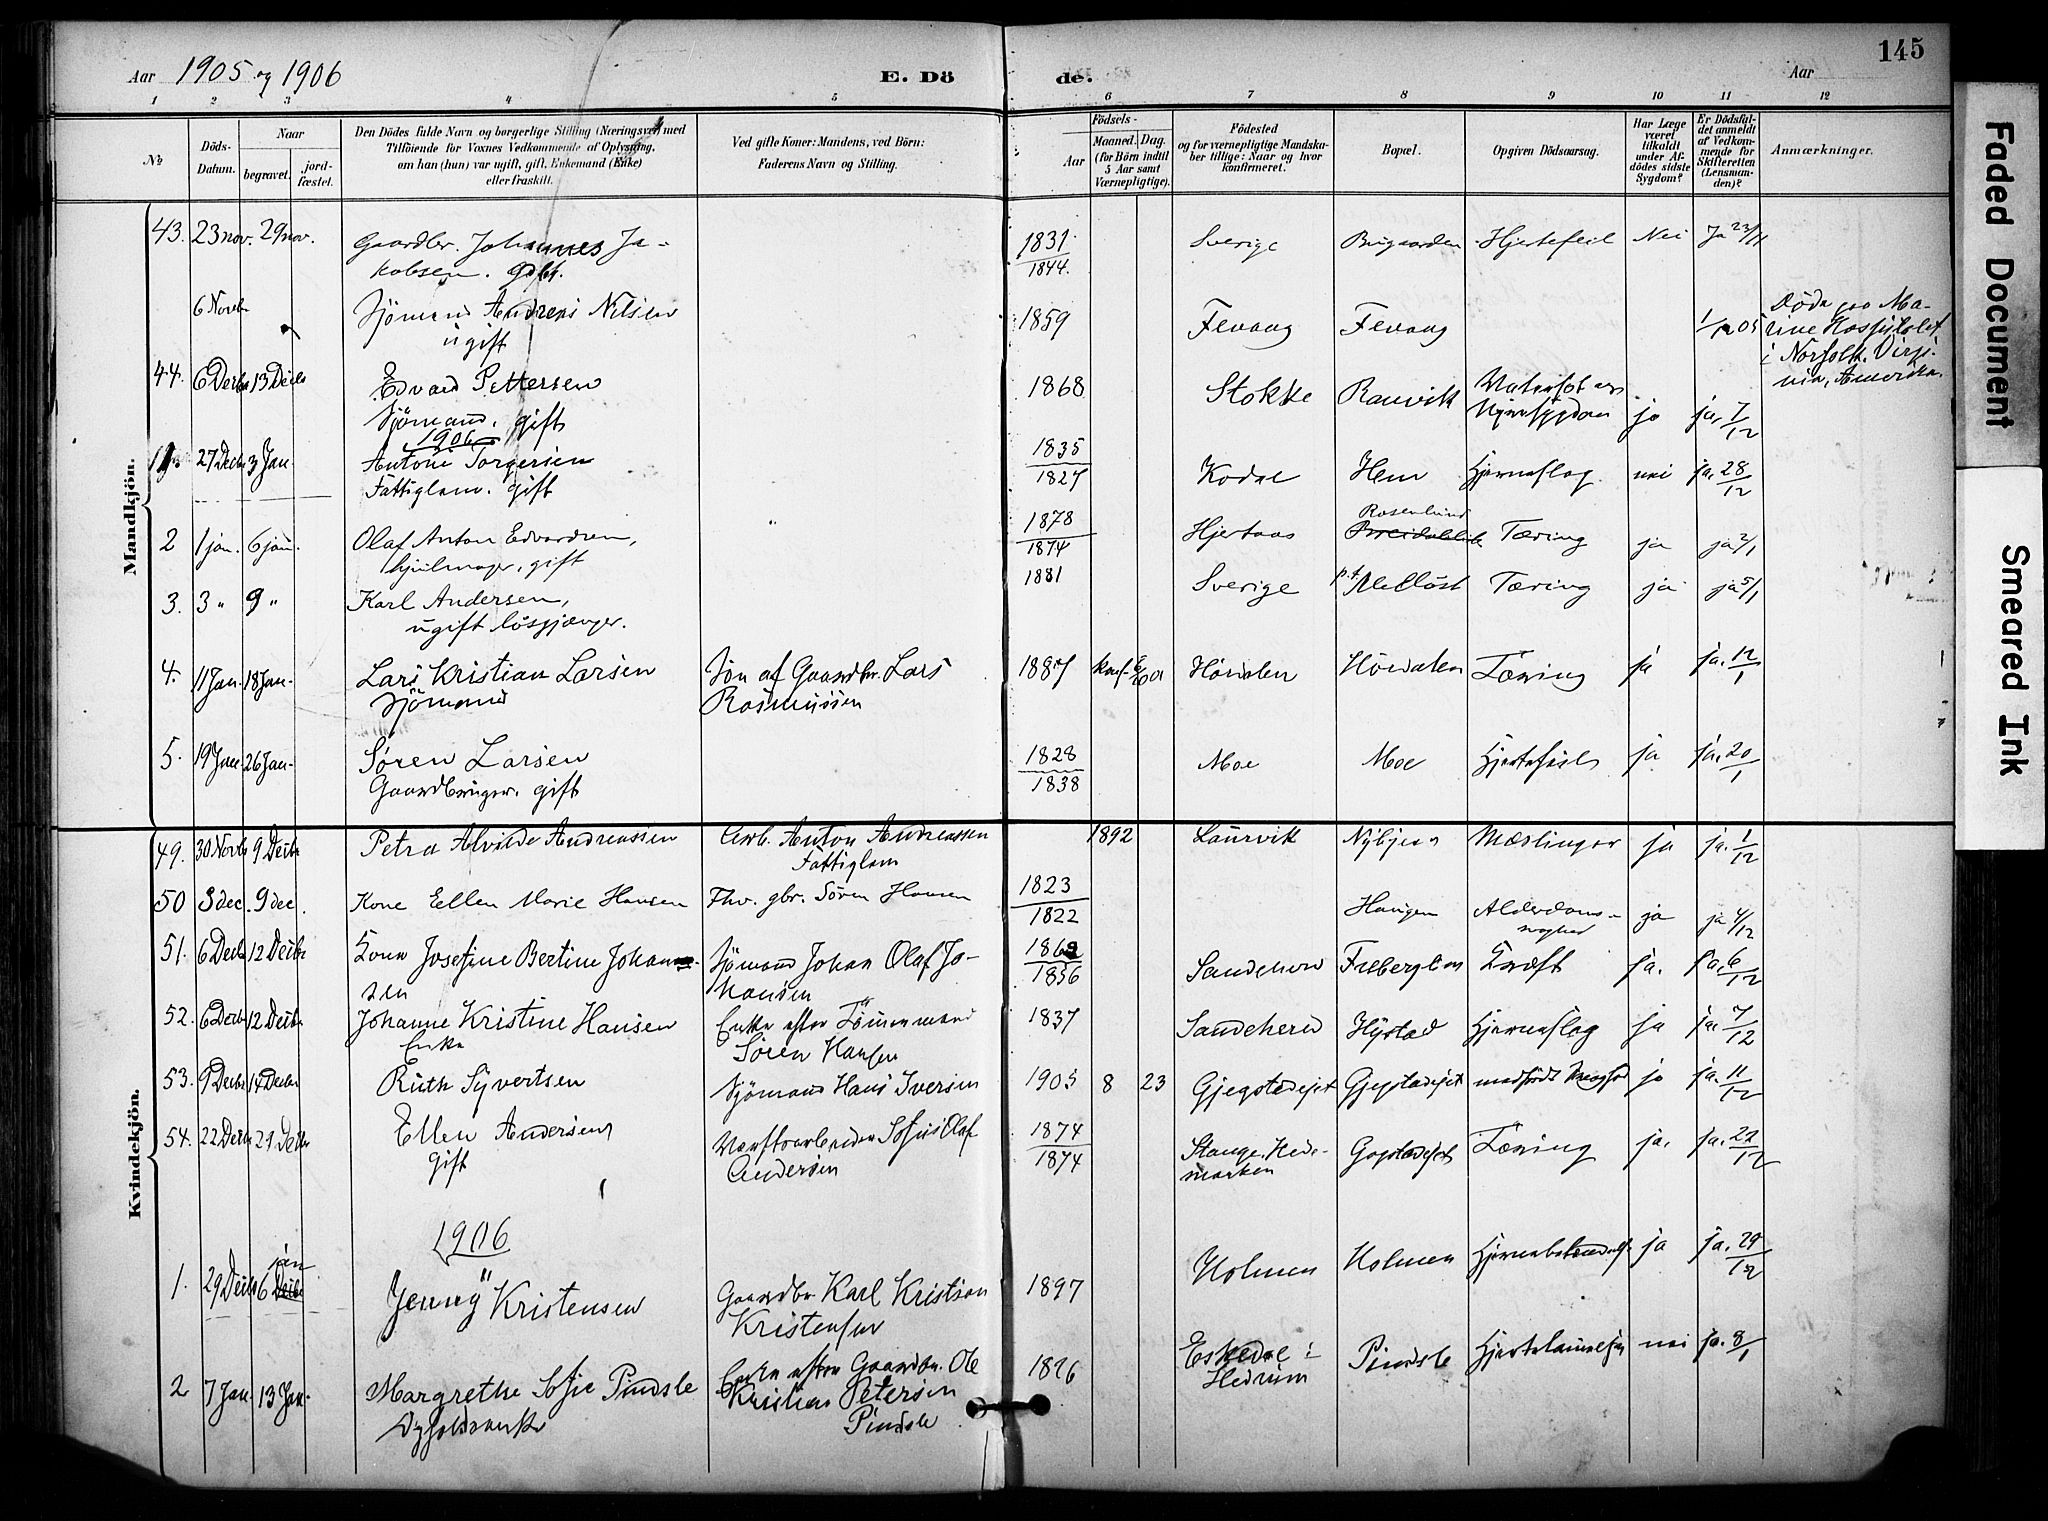 Aar 1905 og 1906
E. Dö
de.
Aar
145
1 2 3 4 5 6 7 8 9 10 11 12
No
Döds-
Datum.
Naar
begravet.
jord-
fæstet.
Den Dödes fulde Navn og borgerlige Stilling (Næringsvei) med
Tilföiende for Voxnes Vedkommende af Oplysning,
om han (hun) var ugift, gift, Enkemand (Enke)
eller fraskilt.
Ved gifte Koner: Mandens, ved Börn:
Faderens Navn og Stilling.
Födsels-
Aar
Maaned. Dag.
(for Börn indtil
5 Aar samt
Værnepligtige).
Födested
og for værnepligtige Mandska-
ber tillige: Naar og hvor
konfirmeret.
Bopæl.
Opgiven Dödsaarsag.
Har Læge
været
tilkaldt
under Af-
dödes sidste
Sygdom?
Er Dödsfal-
det anmeldt
af Vedkom-
mende for
Skifteretten
(Lensman-
den)?
Anmærkninger.
Mandkjön.
43. 23 nov. 29 nov. Gaardbr. Johannes Ja- 1831 Sverige Hjertefeil Nei Ja 23/11
kobsen. gift. 1844.
6 Novbr Sjömand Andreas Nilsen 1859 Fevang Fevang 1/12 05 Döde paa Ma-
ugift rine Hospitalet
i Norfolk, Virji-
nia, Amerika.
44. 6 Decbr 13 Decbr Edvard Pettersen 1868 Stokke Ranvik ja ja. 7/12
Sjömand. gift
1906
1. 27 Decbr 3 Jan. Antoni Torgersen 1835 Kodal Hem Hjerneslag. nei ja. 28/12
Fattiglem. gift 1827
2 1 jan. 6 jan. Olaf Anton Edvardsen, 1878 Hjertaas Rosenlund Tæring ja ja 2/1
hjulmager, gift 1874
3. 3 " 9 " Karl Andersen, 1881 Sverige Tæring ja ja 5/1
ugift lösgjænger.
4. 11 Jan. 18 Jan. Lars Kristian Larsen Sön af Gaardbr. Lars 1887 konf. Tæring ja ja. 12/1
Sjömand Rasmussen
5. 19 Jan. 26 Jan. Sören Larsen 1828 Moe Moe Hjertefeil ja ja. 20/1
Gaardbruger. gift 1838
Kvindekjön.
49. 30 Novbr 9 Decbr Petra Alvilde Andreassen Arb. Anton Andreassen 1892 Laurvik Mæslinger ja ja. 1/12
Fattiglem
50 3 dec. 9 dec. Kone Ellen Marie Hansen Fhv. gbr. Sören Hansen 1823 Haugen Alderdoms- ja ja 4/12
1822
51. 6 Decbr 12 Decbr Kone Josefine Bertine Johan- Sjömand Johan Olaf Jo- Sandeherd Kræft ja. ja. 6/12
sen hansen 1856
52. 6 Decbr 12 Decbr Johanne Kristine Hansen Enke efter Tömmermand 1837 Sandeherd Hystad Hjerneslag ja ja. 7/12
Enke Sören Hansen
53. 9 Decbr 14 Decbr Ruth Syvertsen Sjömand Hans Iversen 1905 8 23 ja ja. 11/12
54. 22 Decbr 29 Decbr Ellen Andersen Værftsarbeider Sofus Olaf 1874 Stange, Hede- Tæring ja. ja. 22/12
gift Andersen 1874 marken
1906
1. 29 Decbr 6 jan Jenny Kristensen Gaardbr Karl Kristian 1897 Holmen Holmen Hjernebetændelse ja ja. 29/12
Kristensen
2 7 Jan 13 Jan. Margrethe Sofie Pindsle Enke efter Gaardbr. Ole 1826 Eskedal i Pindsle Hjertelammelse nei ja. 8/1
Kristian Petersen Hedrum
Pindsle
Faded Document
Smeared Ink